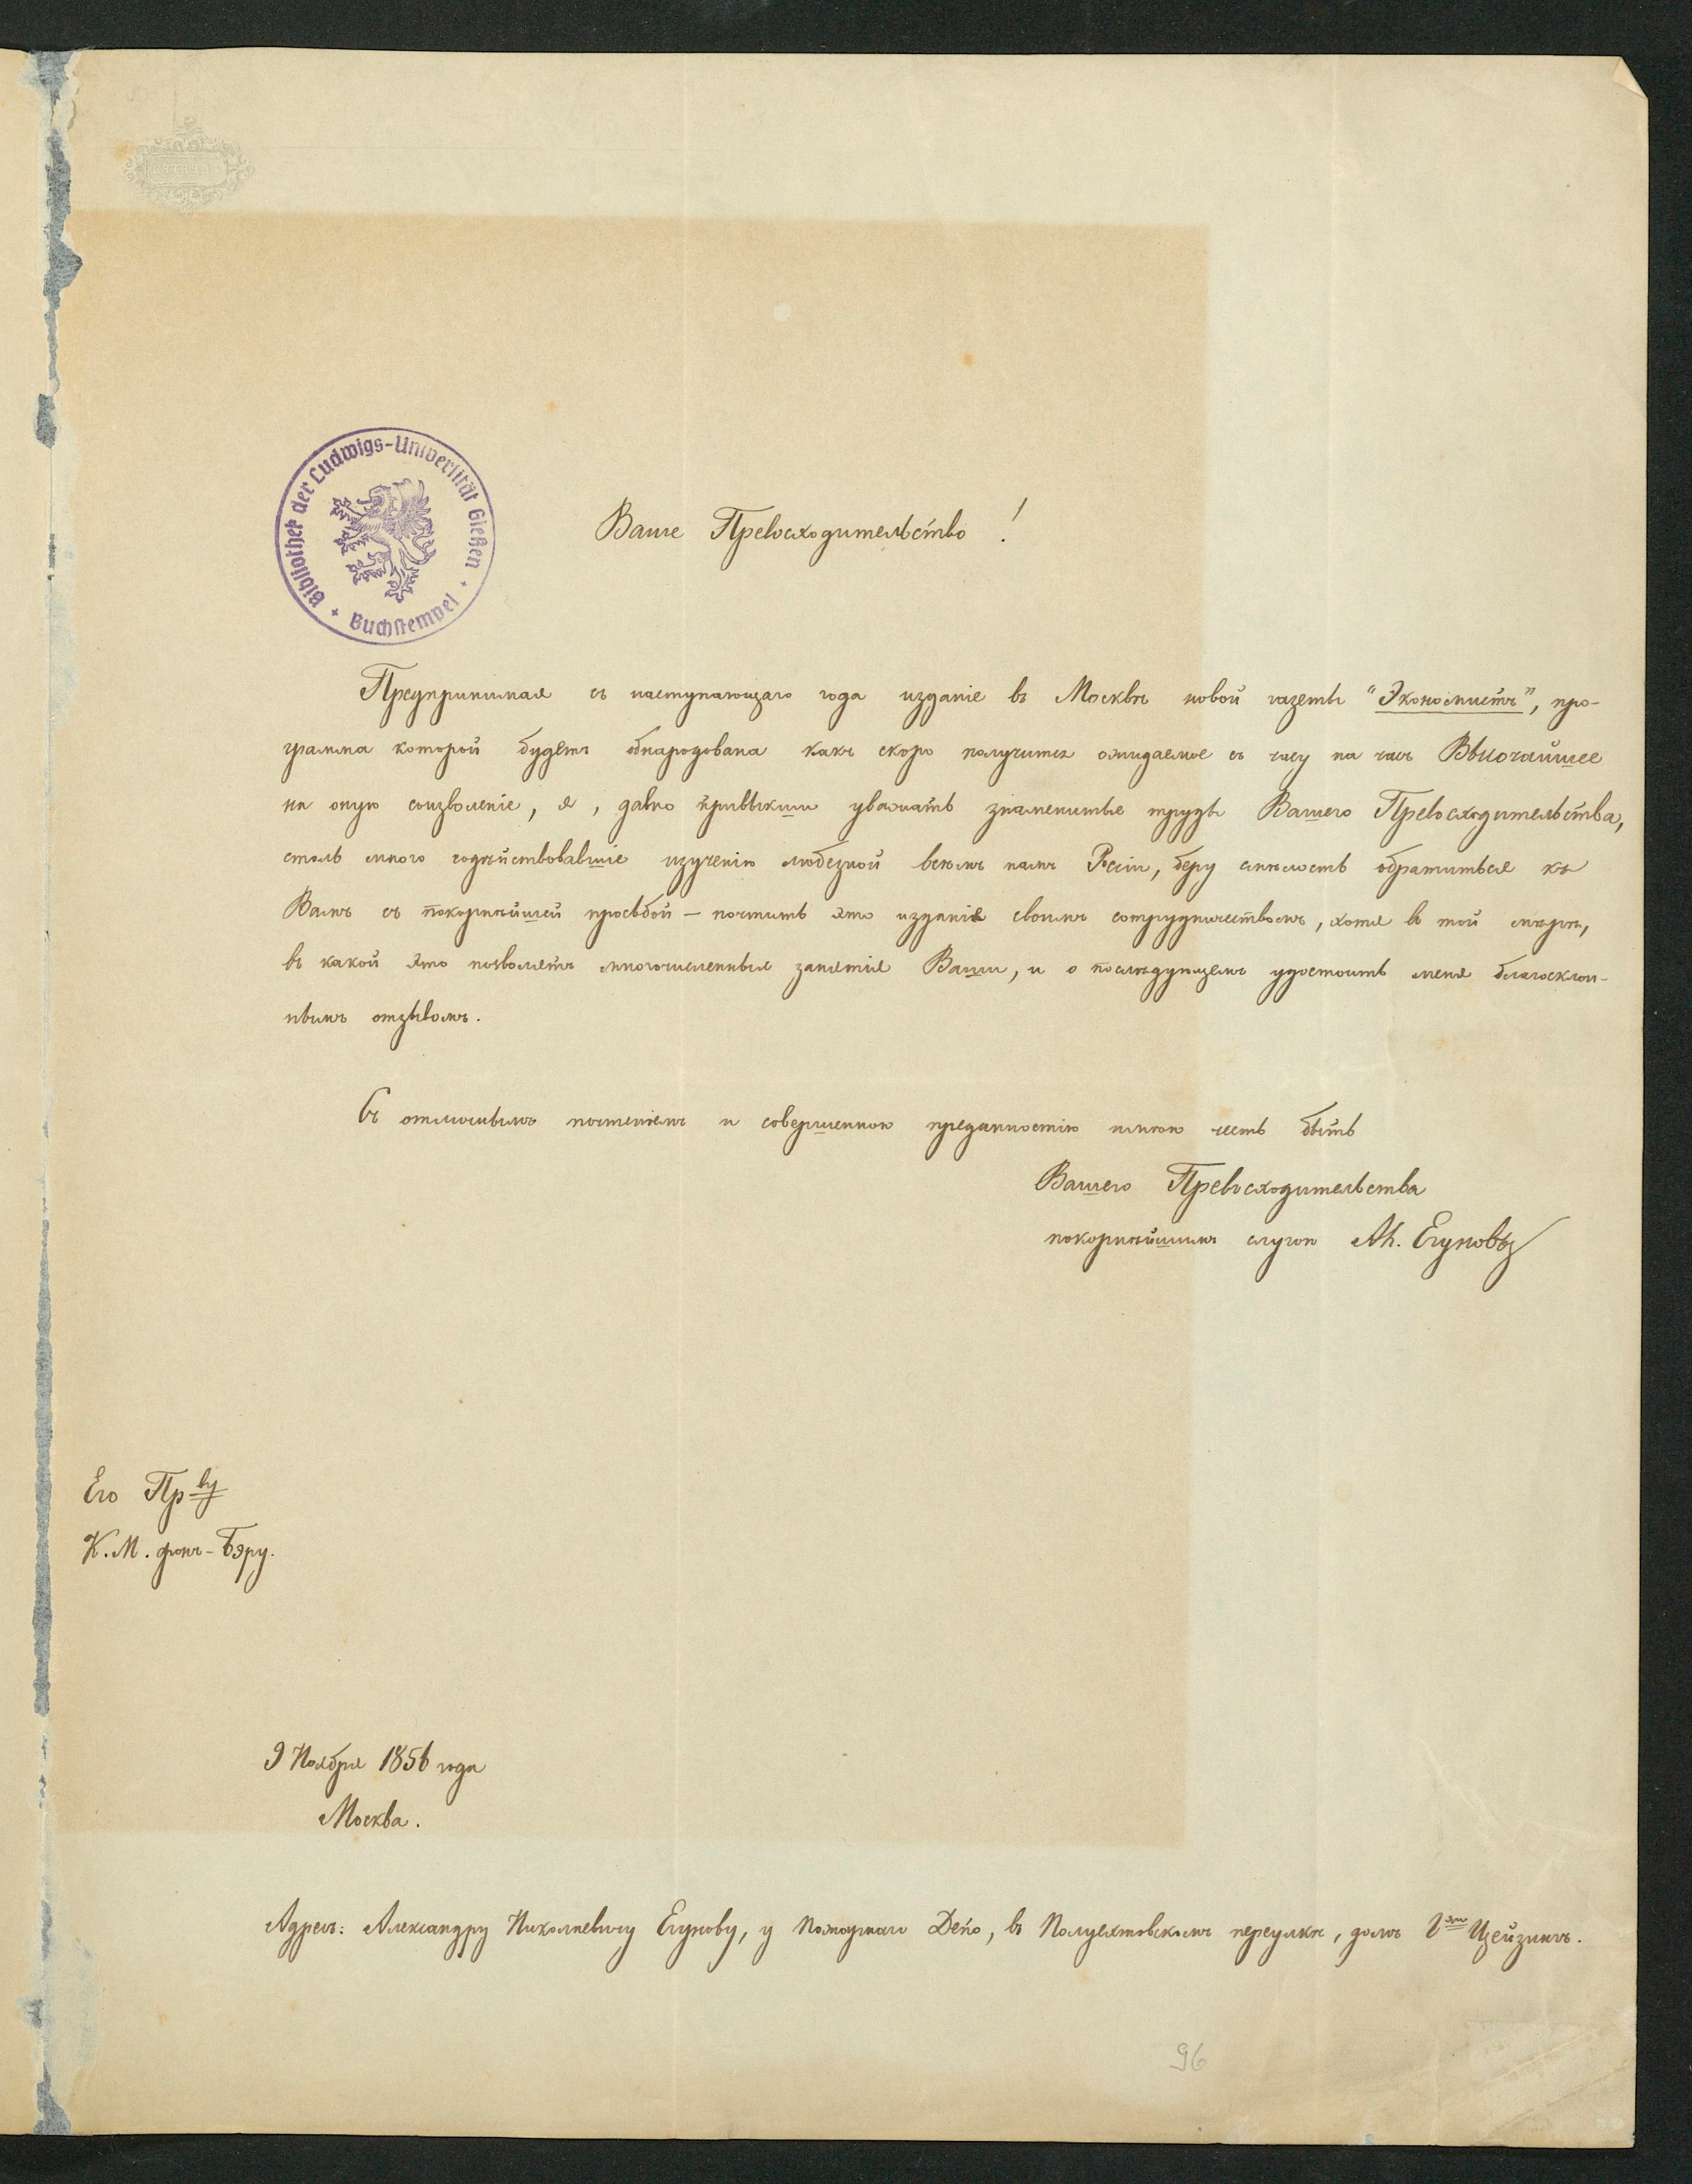 Bibliothek der Ludwigs-Universität Gießen
Buchstempel
Ваше Превосходительство!
Предпринимая съ наступающаго года изданіе въ Москвѣ новой газеты "Экономистъ", про-
грамма которой будетъ обнародована какъ скоро получится ожидаемое съ часу на часъ Высочайшее
на оную соизволеніе, я, давно привыкши уважать знаменитые труды Вашего Превосходительства,
столь много содѣйствовавшіе изученію любезной всѣмъ намъ Россіи, беру смѣлость обратиться къ
Вамъ съ покорнѣйшей просьбой – почтить это изданіе своимъ сотрудничествомъ, хотя въ той мѣрѣ,
въ какой это позволятъ многочисленныя занятія Ваши, и о послѣдующемъ удостоить меня благосклон-
нымъ отзывомъ.
Съ отличнымъ почтеніемъ и совершенною преданностію имѣю честь быть
Вашего Превосходительства
покорнѣйшимъ слугою Ал. Егуновъ
Его Пр-ву
К. М. фонъ-Бэру.
9 Ноября 1856 года
Москва.
Адресъ: Александру Николаевичу Егунову, у Пожарнаго Депо, въ Полуехтовскомъ переулкѣ, домъ Цейзигъ.
96